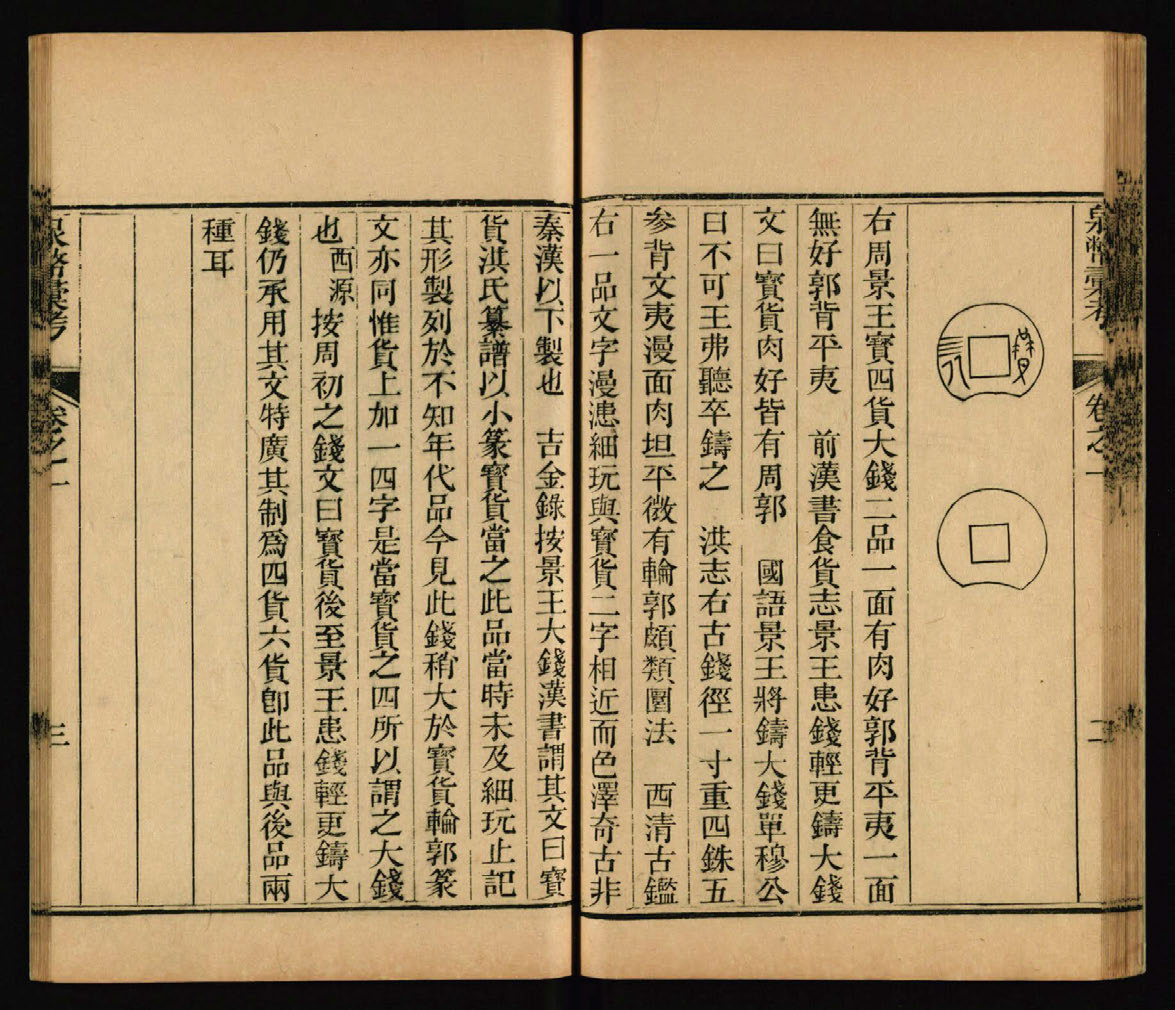 泉幣彙考
卷之一
二
右周景王寶四貨大錢二品一面有肉好郭背平夷一面
無好郭背平夷　前漢書食貨志景王患錢輕更鑄大錢
文曰寶貨肉好皆有周郭　國語景王將鑄大錢單穆公
曰不可王弗聽卒鑄之　洪志右古錢徑一寸重四銖五
參背文夷漫面肉坦平微有輪郭頗類圜法　西清古鑑
右一品文字漫漶細玩與寶貨二字相近而色澤奇古非
秦漢以下製也　吉金錄按景王大錢漢書謂其文曰寶
貨洪氏纂譜以小篆寶貨當之此品當時未及細玩止記
其形製列於不知年代品今見此錢稍大於寶貨輪郭篆
文亦同惟貨上加一四字是當寶貨之四所以謂之大錢
也　西源　按周初之錢文曰寶貨後至景王患錢輕更鑄大
錢仍承用其文特廣其制爲四貨六貨卽此品與後品兩
種耳
泉幣彙考
卷之一
三